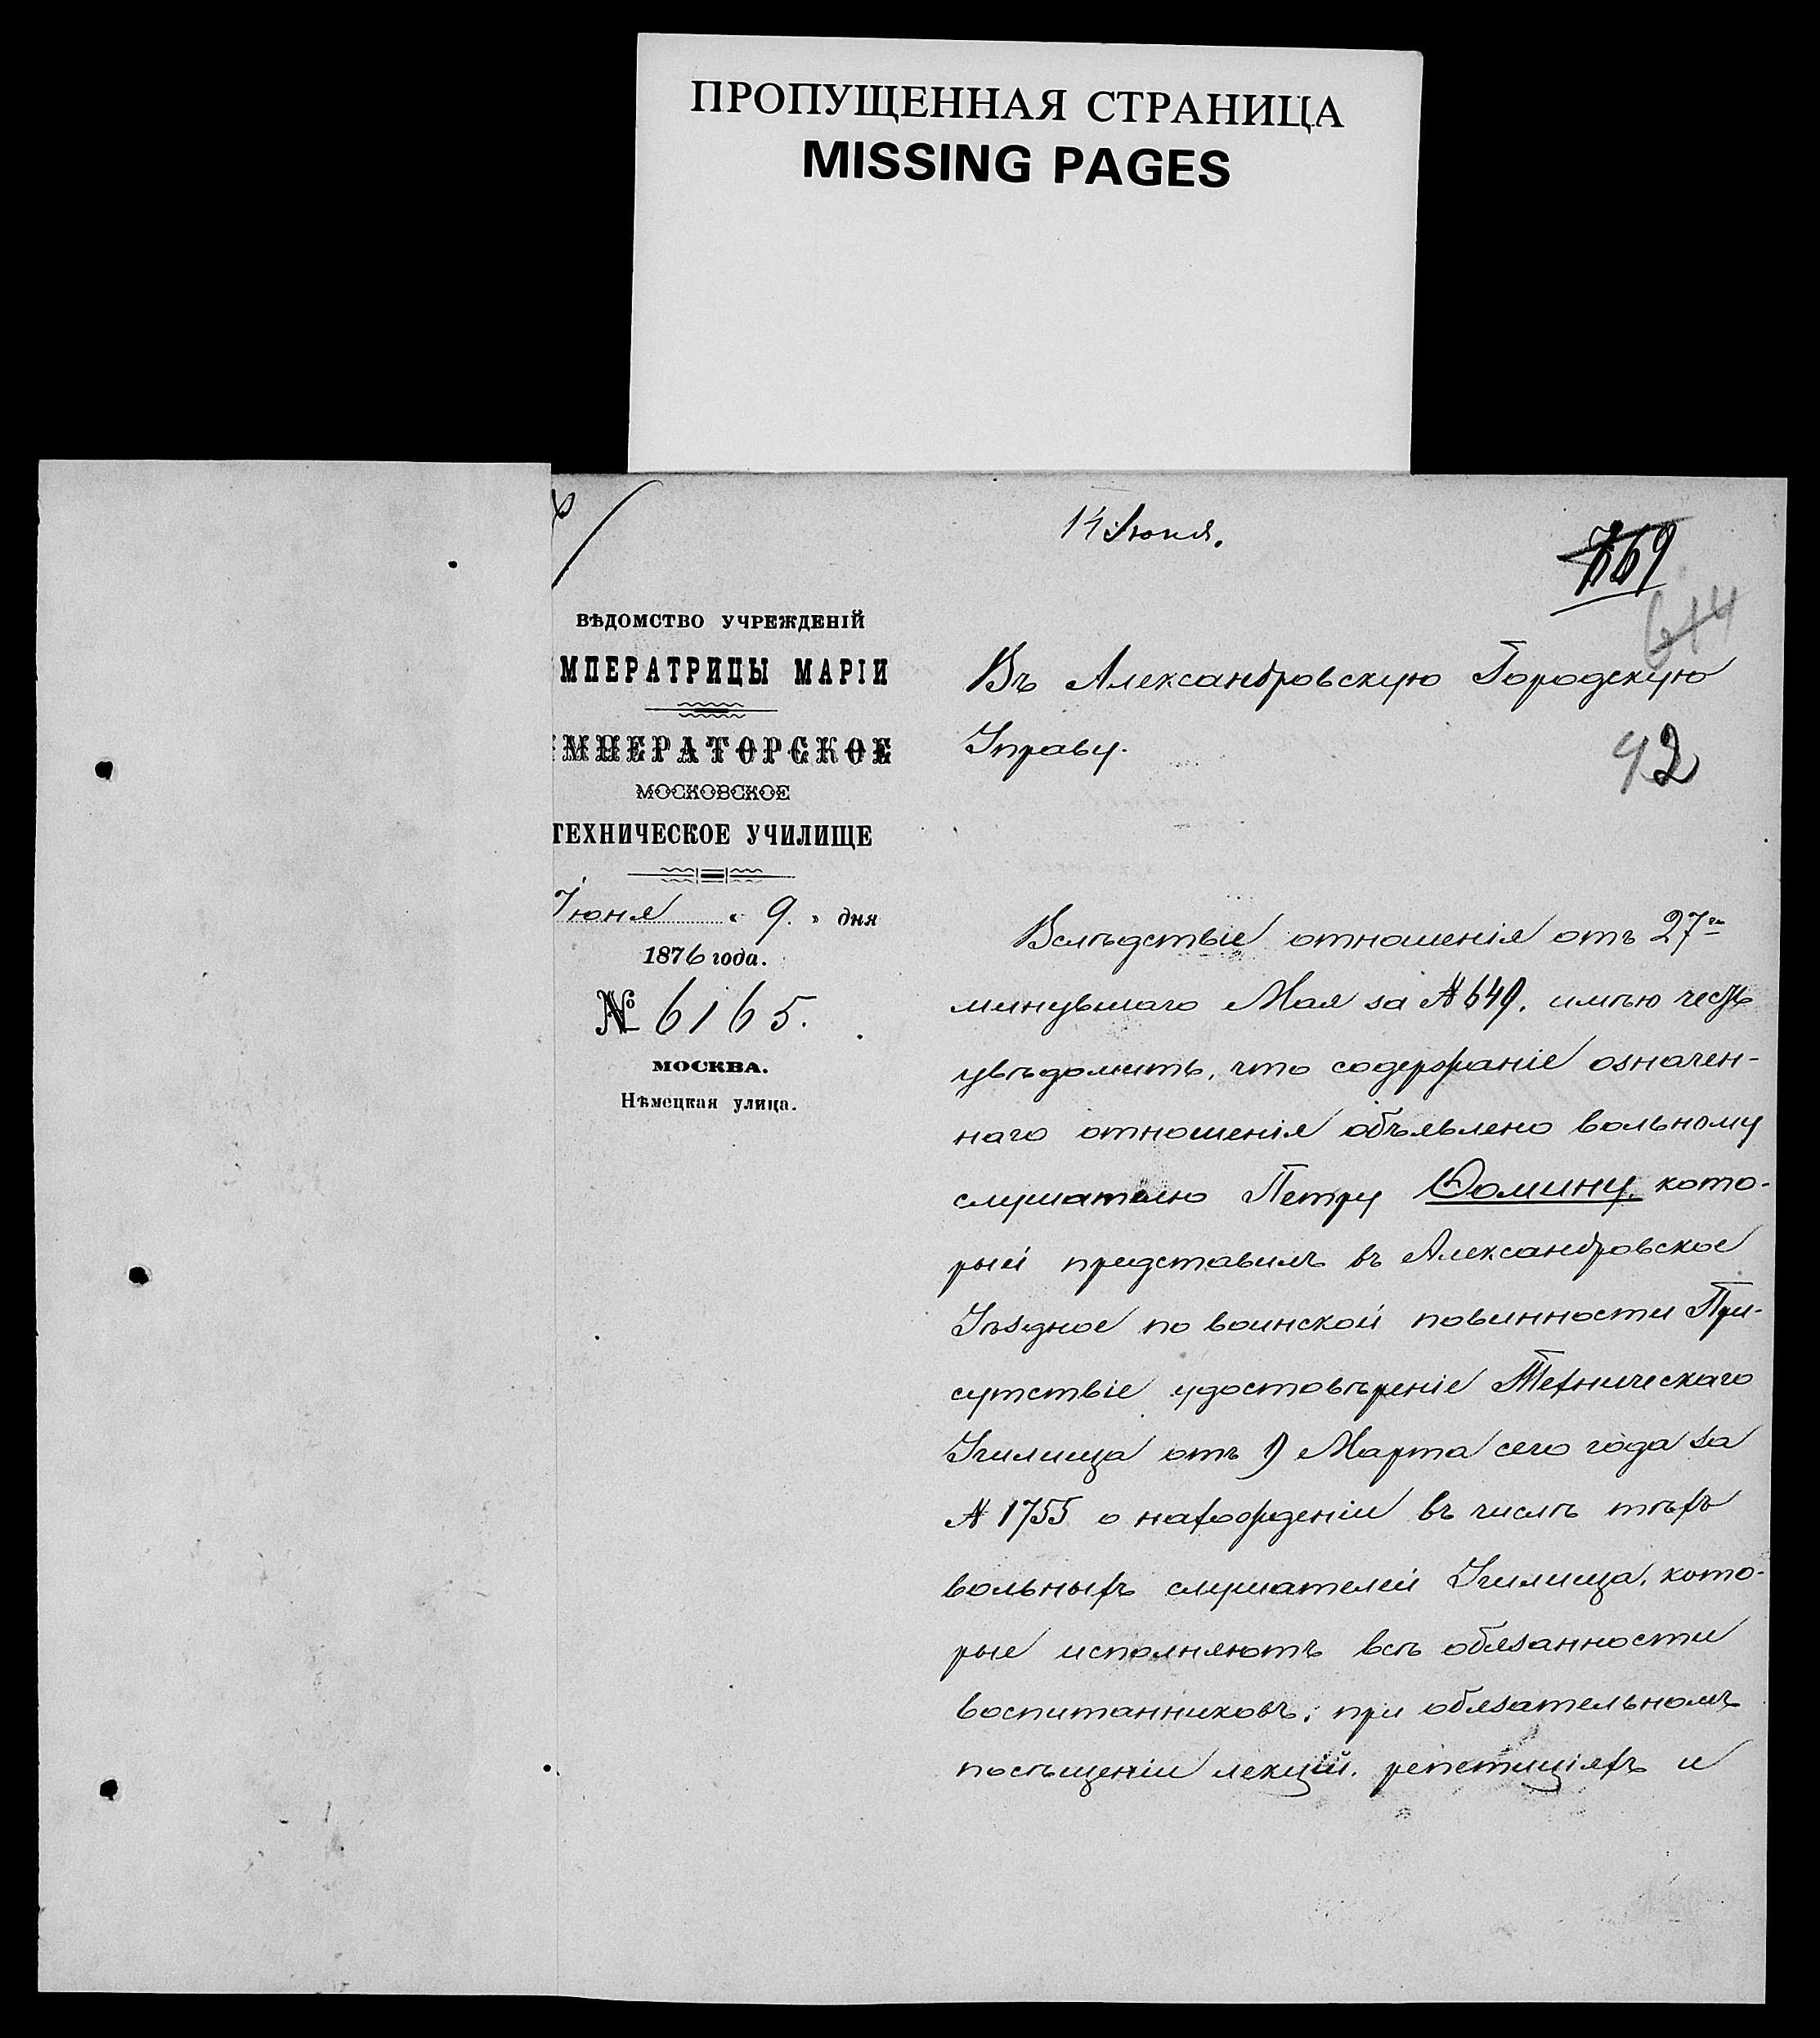 ПРОПУЩЕННАЯ СТРАНИЦА
MISSING PAGES
14 Июня.
769
614
42
ВѢДОМСТВО УЧРЕЖДЕНІЙ
МПЕРАТРИЦЫ МАРІИ
МПЕРАТОРСКОЕ
МОСКОВСКОЕ
ТЕХНИЧЕСКОЕ УЧИЛИЩЕ
Іюня « 9. » дня
1876 года.
№ 6165.
МОСКВА.
Нѣмецкая улица.
Въ Александровскую Городскую
Управу.
Вслѣдствіе отношенія отъ 27го
минувшаго Мая за № 649, имѣю честь
увѣдомить, что содержаніе означен-
наго отношенія объявлено вольному
слушателю Петру Ѳомину, кото-
рый представилъ въ Александровское
Уѣздное по воинской повинности При-
сутствіе удостовѣреніе Техническаго
Училища отъ 9 Марта сего года за
№ 1755 о нахожденіи въ числѣ тѣхъ
вольныхъ слушателей Училища, кото-
рые исполняютъ всѣ обязанности
воспитанниковъ, при обязательномъ
посѣщеніи лекцій, репетиціяхъ и